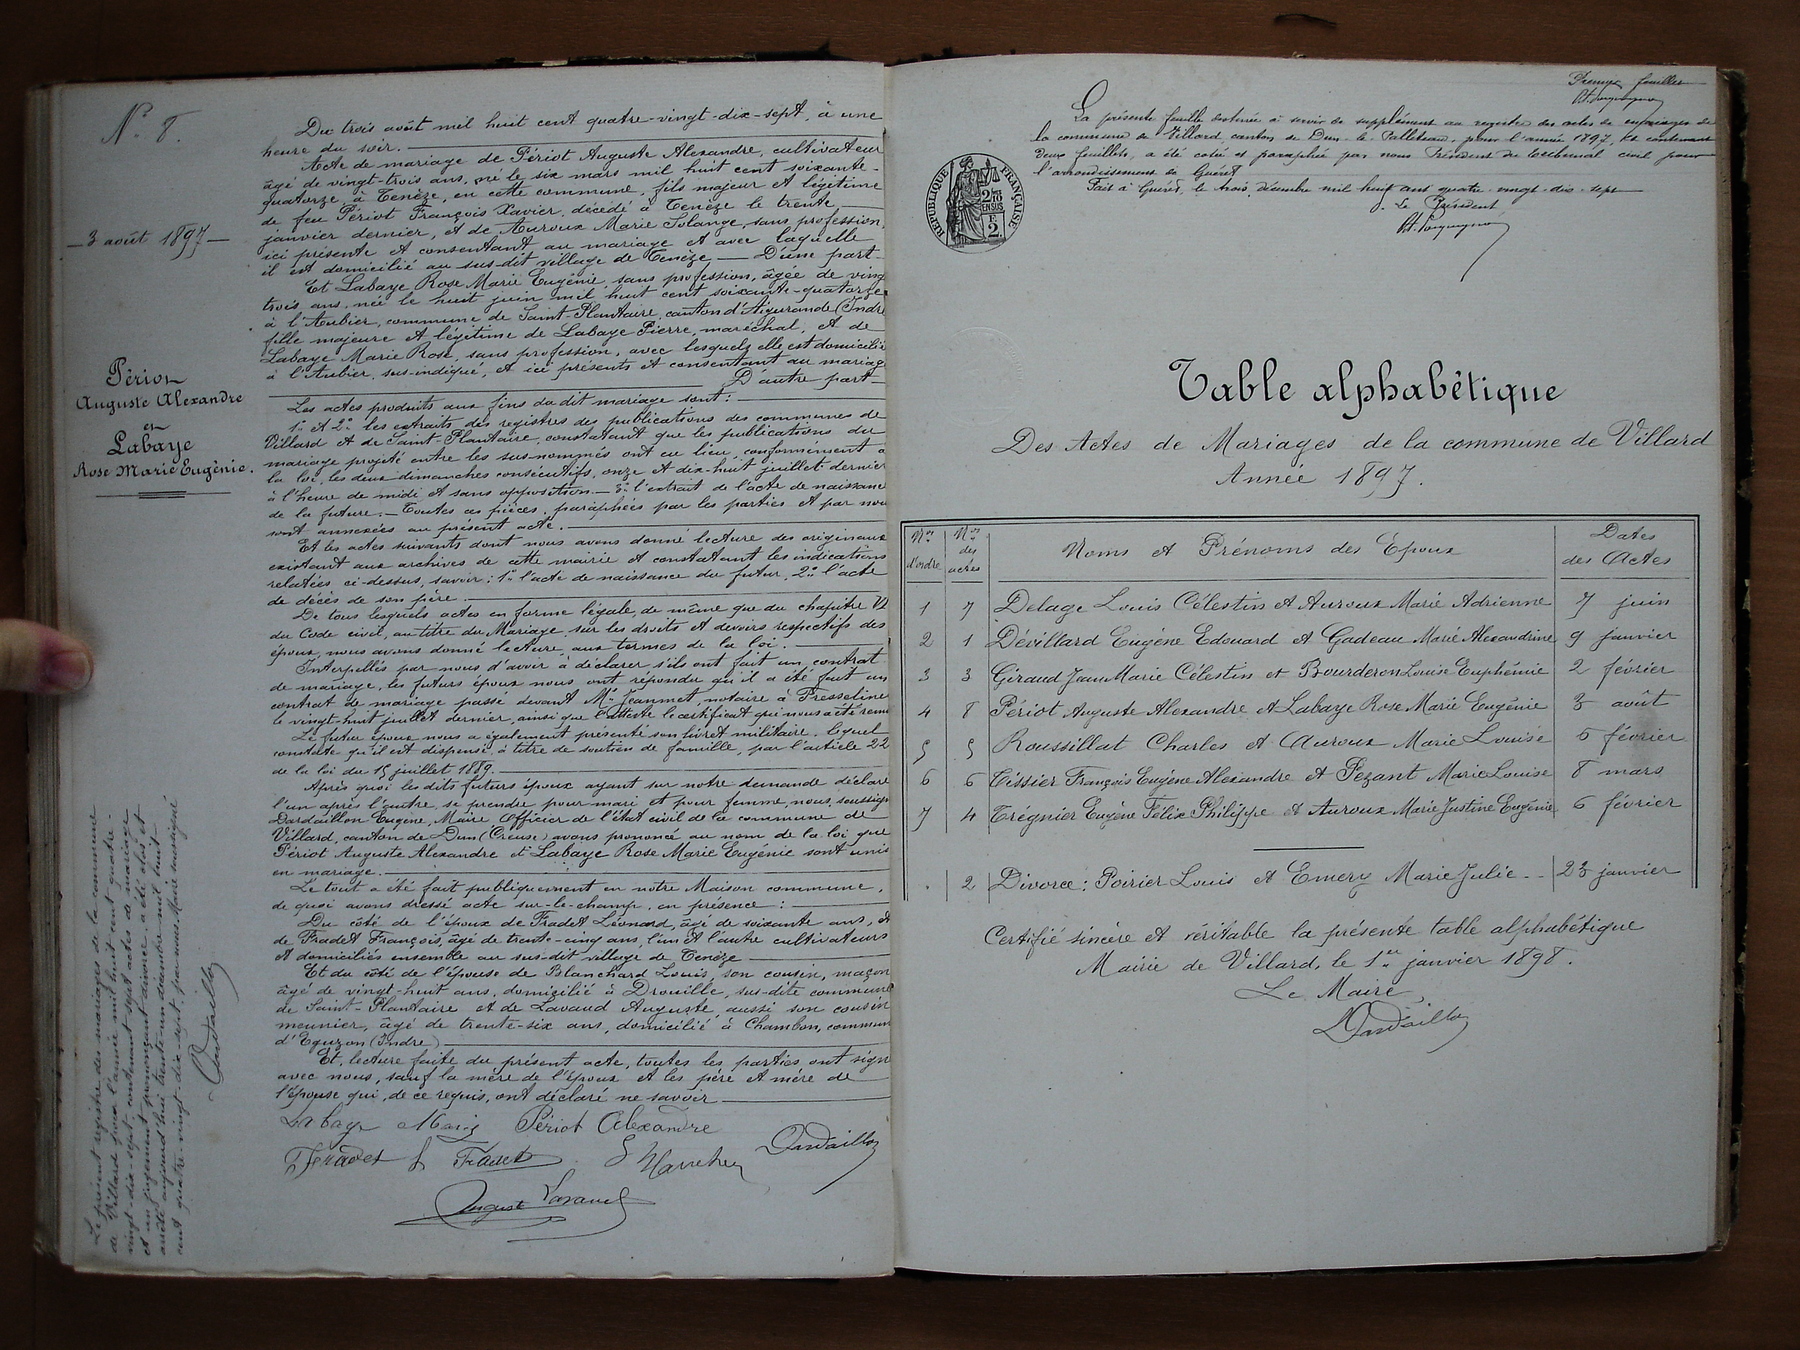 N° 8.
Du trois août mil huit cent quatre-vingt-dix-sept, à une
heure du soir.
Acte de mariage de Périot Auguste Alexandre, cultivateur
âgé de vingt-trois ans, né le six mars mil huit cent soixante-
quatorze, à Tenèze, en cette commune, fils majeur et légitime
de feu Périot François Xavier, décédé à Tenèze le trente
janvier dernier, et de Auroux Marie Solange, sans profession,
ici présente et consentant au mariage et avec laquelle
il est domicilié au sus-dit village de Tenèze — D'une part —
Et Labaye Rose Marie Eugénie, sans profession, âgée de ving
trois ans, née le huit juin mil huit cent soixante-quatorze
à l'Aubier, commune de Saint-Plantaire, canton d'Aigurande (Indre
fille majeure et légitime de Labaye Pierre, maréchal, et de
Labaye Marie Rose, sans profession, avec lesquels elle est domicilié
à l'Aubier, sus-indiqué, et ici présents et consentant au mariag
D'autre part —
3 août 1897
Périot
Auguste Alexandre
et
Labaye
Rose Marie Eugénie.
Les actes produits aux fins du dit mariage sont :
1° et 2° les extraits des registres des publications des communes de
Villard et de Saint-Plantaire, constatant que les publications du
mariage projeté entre les sus-nommés ont eu lieu, conformément à
la loi, les deux dimanches consécutifs, onze et dix-huit juillet dernier
à l'heure de midi et sans opposition — 3° l'extrait de l'acte de naissance
de la future. — Toutes ces pièces, paraphées par les parties et par nou
sont annexées au présent acte.
Et les actes suivants dont nous avons donné lecture des originaux
existant aux archives de cette mairie et constatant les indications
relatées ci-dessus, savoir : 1° l'acte de naissance du futur, 2° l'acte
de décès de son père.
De tous lesquels actes en forme légale, de même que du chapitre VI
du Code civil, au titre du Mariage, sur les droits et devoirs respectifs des
époux, nous avons donné lecture, aux termes de la loi.
Interpellés par nous d'avoir à déclarer s'ils ont fait un contrat
de mariage, les futurs époux nous ont répondu qu'il a été fait un
contrat de mariage passé devant Me Jeannet, notaire à Fresseline
le vingt-huit juillet dernier, ainsi que l'atteste le certificat qui nous a été remi
Le futur époux nous a également présenté son livret militaire, lequel
constate qu'il est dispensé à titre de soutien de famille, par l'article 22
de la loi du 15 juillet 1889.
Après quoi les dits futurs époux ayant sur notre demande déclaré
l'un après l'autre, se prendre pour mari et pour femme, nous, soussign
Dardaillon Eugène, Maire officier de l'état civil de la commune de
Villard, canton de Dun (Creuse) avons prononcé au nom de la loi que
Périot Auguste Alexandre et Labaye Rose Marie Eugénie sont unis
en mariage.
Le tout a été fait publiquement en notre Maison commune,
de quoi avons dressé acte sur-le-champ, en présence :
Du côté de l'époux de Fradet Léonard, âgé de soixante ans, et
de Fradet François, âgé de trente-cinq ans, l'un et l'autre cultivateurs
et domiciliés ensemble au sus-dit village de Tenèze
Et du côté de l'épouse de Blanchard Louis, son cousin, maçon
âgé de vingt-huit ans, domicilié à Drouille, sus-dite commune
de Saint-Plantaire et de Lavaud Auguste, aussi son cousin
meunier, âgé de trente-six ans, domicilié à Chambon, commun
d'Eguzon (Indre)
Et, lecture faite du présent acte, toutes les parties ont sign
avec nous, sauf la mère de l'époux et les père et mère de
l'épouse qui, de ce requis, ont déclaré ne savoir
Labaye Marie Périot Alexandre
Fradet f Fradet Dardaillon
Auguste Lavaud
Le présent registre des mariages de la commune
de Villard pour l'année mil huit cent quatre-
vingt-dix-sept, contenant sept actes de mariage
et un jugement prononçant divorce, a été clos et
arrêté aujourd'hui trente-un décembre mil huit
cent quatre-vingt-dix-sept, par nous, Maire soussigné
Dardaillon
Premier feuillet
La présente feuille destinée à servir de supplément au registre des actes de mariages de
la commune de Villard, canton de Dun-le-Palleteau, pour l'année 1897, et contenant
deux feuillets, a été cotée et paraphée par nous Président du tribunal civil pour
l'arrondissement de Guéret
Fait à Guéret, le trois décembre mil huit cent quatre-vingt-dix-sept
Le Président
RÉPUBLIQUE FRANÇAISE
2/10 EN SUS
E
2.
Table alphabétique
Des Actes de Mariages de la commune de Villard
Année 1897.
Nos d'ordre Nos des actes Noms et Prénoms des Epoux Dates des Actes
1 7 Delage Louis Célestin et Auroux Marie Adrienne 7 juin
2 1 Dévillard Eugène Edouard et Gadeau Marie Alexandrine 9 janvier
3 3 Giraud Jean Marie Célestin et Bourderon Louise Euphémie 2 février
4 8 Périot Auguste Alexandre et Labaye Rose Marie Eugénie 3 août
5 5 Roussillat Charles et Auroux Marie Louise 6 février
6 6 Tissier François Eugène Alexandre et Pezant Marie Louise 8 mars
7 4 Trégnier Eugène Félix Philippe et Auroux Marie Justine Eugénie 6 février
. 2 Divorce : Poirier Louis et Emery Marie Julie 23 janvier
Certifié sincère et véritable la présente table alphabétique
Mairie de Villard, le 1er janvier 1898.
Le Maire,
Dardaillon